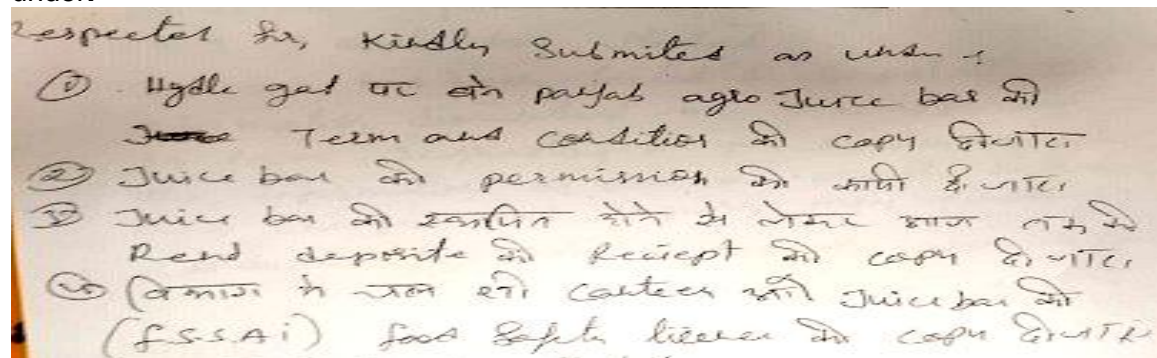 under.
Respected Sir, Kindly Submited as under :
① Hydle gat पर बने panjab agro Juice bar की
Term and condition की copy दी जाए।
② Juice bar की permission की कापी दी जाए।
③ Juice bar की स्थापित होने से लेकर आज तक की
Rend deposite की Reciept की copy दी जाए।
④ विभाग में चल रही canteen और Juice bar की
(F.S.S.A.i) food Safety licence की copy दी जाए